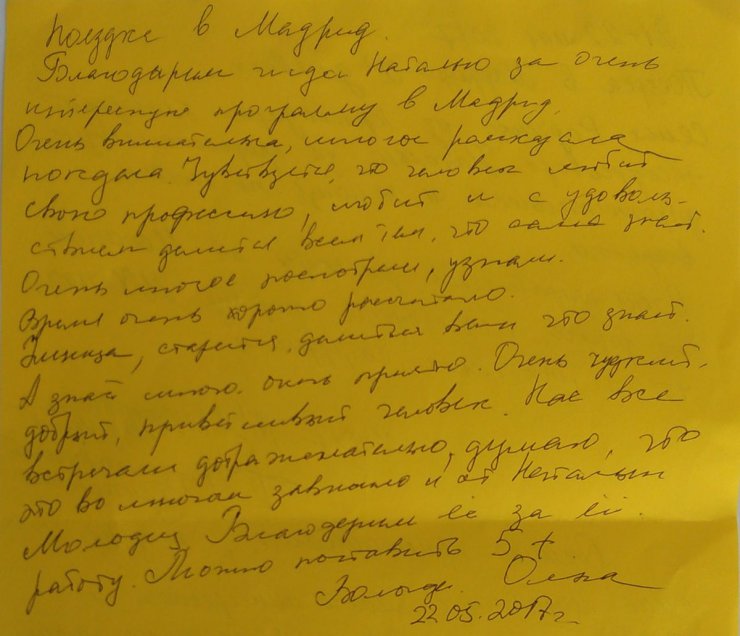 Поездка в Мадрид.
Благодарим гида Наталью за очень
интересную программу в Мадрид.
Очень внимательна, многое рассказала
показала. Чувствуется, что человек любит
свою профессию, любит и с удоволь-
ствием делится всем тем, что сама знает.
Очень многое посмотрели, узнали.
Время очень хорошо рассчитано.
Умница, старается делиться всем что знает.
А знает много. очень просто. Очень чуткий,
добрый, приветливый человек. Нас все
встречали доброжелательно, думаю, что
это во многом зависило и от Натальи
Молодец. Благодарим её за её
работу. Можно поставить 5+
Вологда. Олена
22.05.2017г